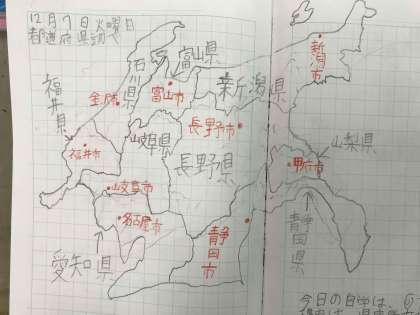 12月7日火曜日
都道府県調べ
石川県
富山県
新潟市
福井県
金沢市
富山市
新潟県
岐阜県
長野市
長野県
福井市
山梨県
甲府市
岐阜市
名古屋市
静岡市
静岡県
愛知県
今日の自学は、